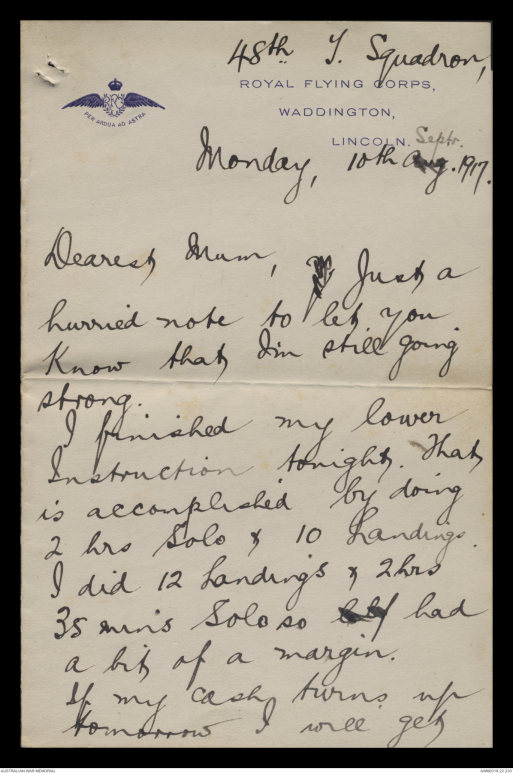 48th T. Squadron,
ROYAL FLYING CORPS,
WADDINGTON,
LINCOLN.
Septr.
Monday, 10th Aug. 1917.
RFC
PER ARDUA AD ASTRA
Dearest Mum,
Just a
hurried note to let you
know that I'm still going
strong.
I finished my lower
Instruction tonight. That
is accomplished by doing
2 hrs Solo & 10 Landings.
I did 12 Landings & 2hrs
35 mins Solo so had
a bit of a margin.
If my cash turns up
tomorrow I will get
AUSTRALIAN WAR MEMORIAL